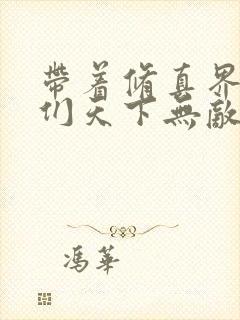 帶着脩真界
们天下無敵
馮華